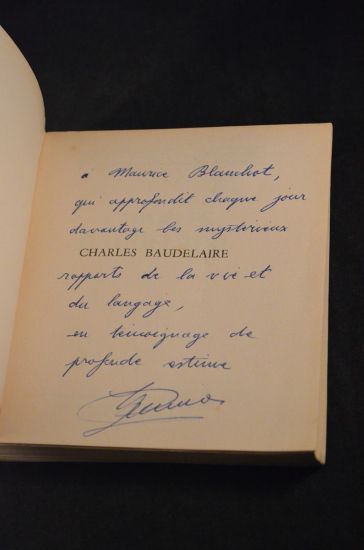 à Maurice Blanchot,
qui approfondit chaque jour
davantage les mystérieux
CHARLES BAUDELAIRE
rapports de la vie et
du langage,
en témoignage de
profonde estime